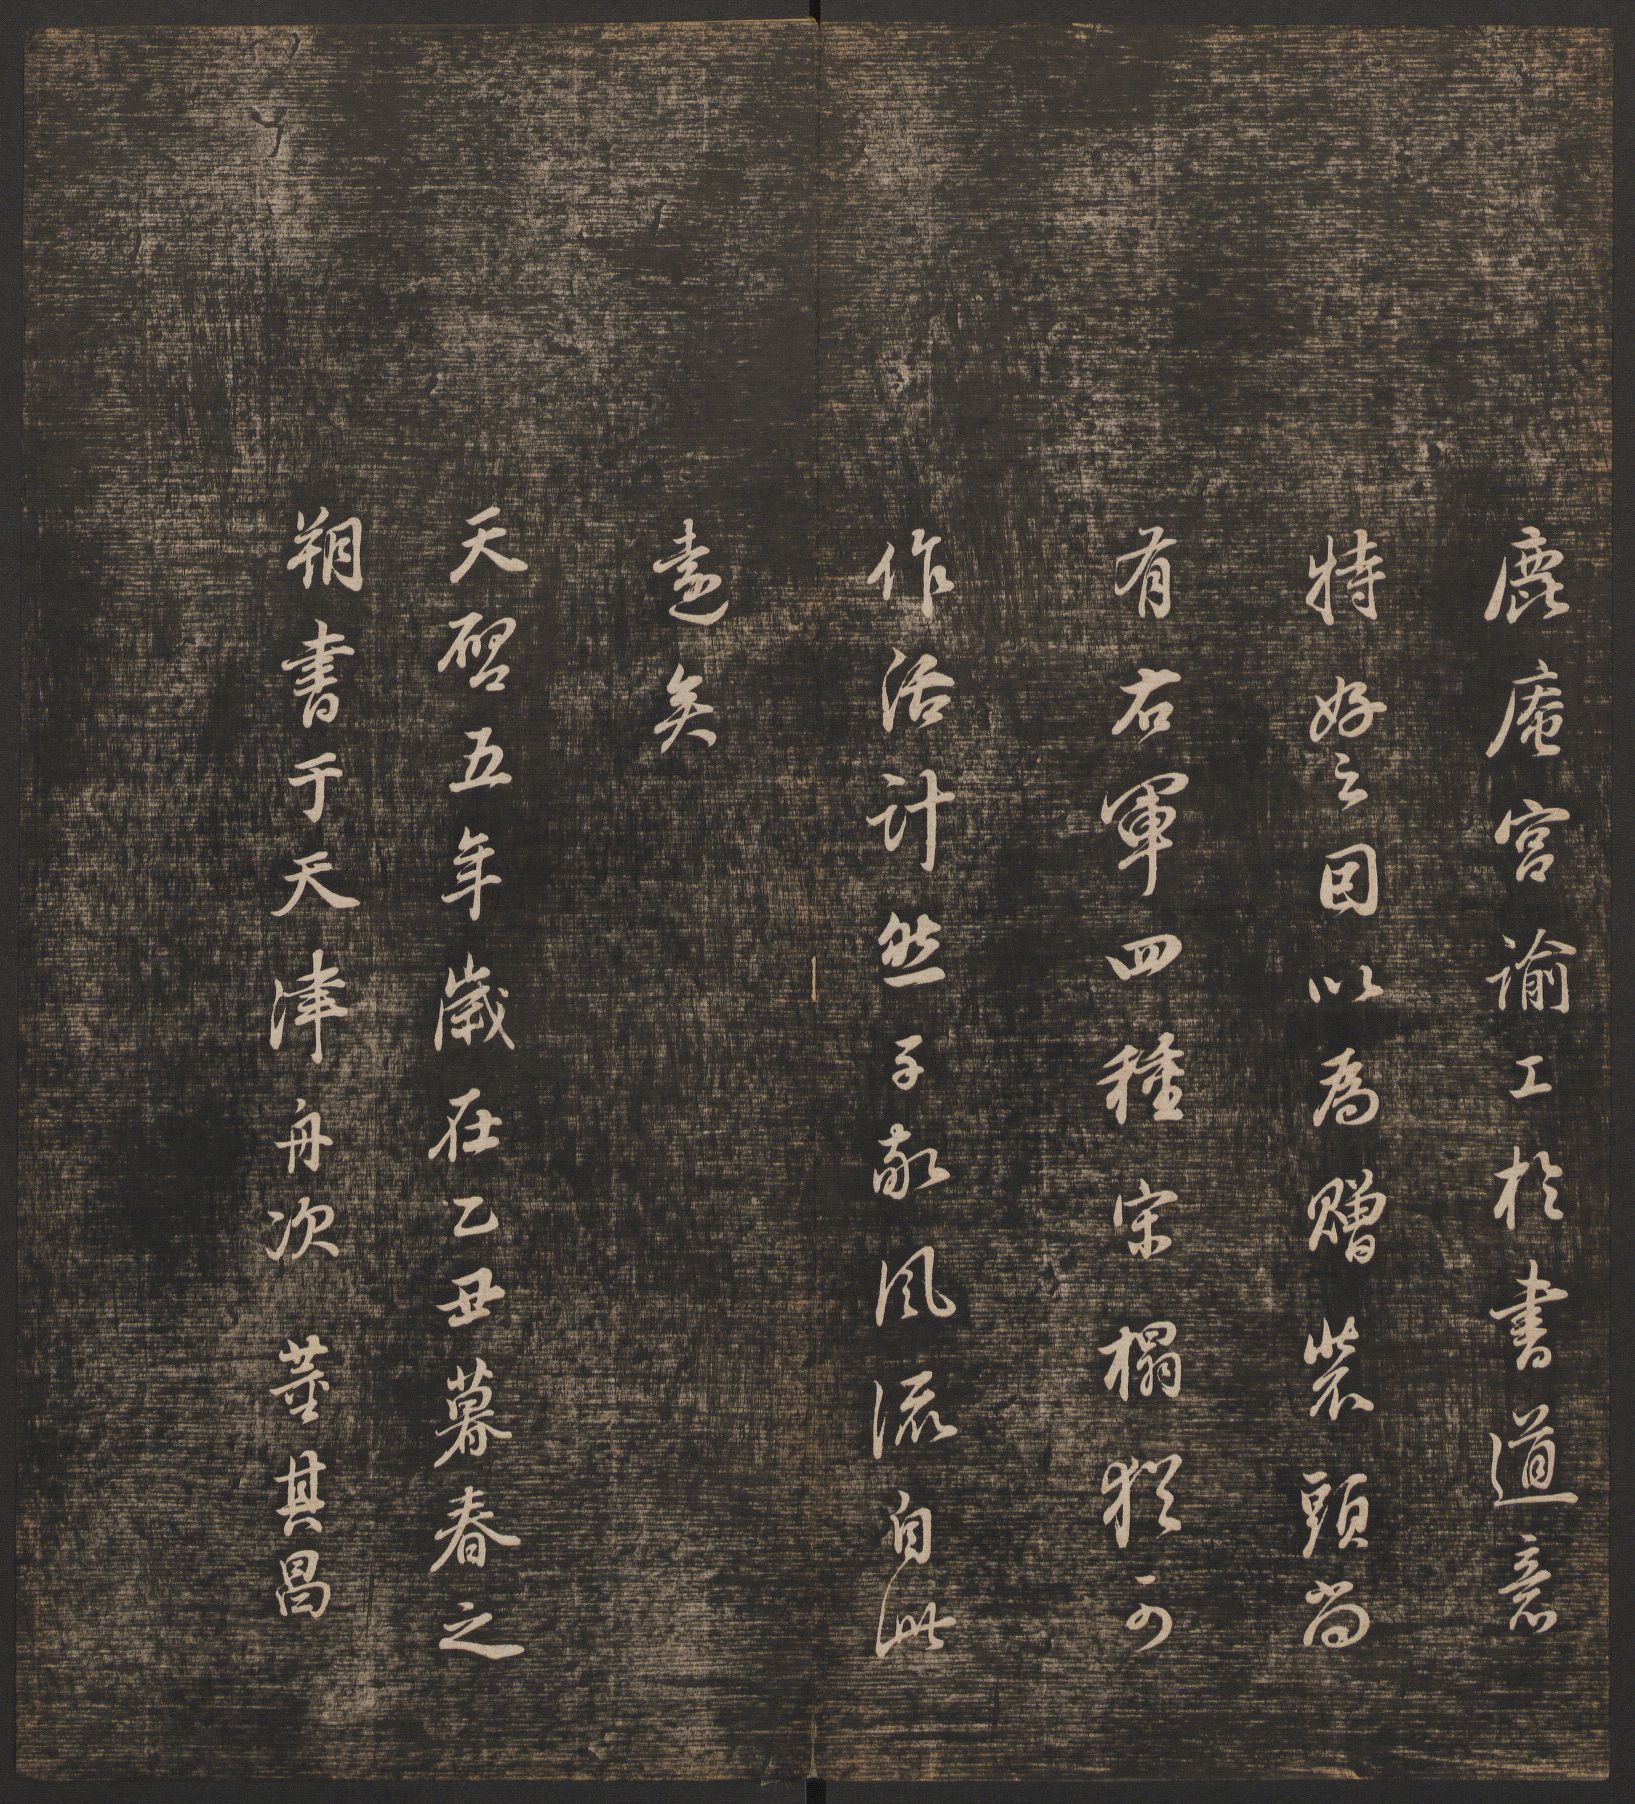 鹿庵宮諭工於書道意
特好之因以為贈裝頭尚
有右軍四種宋榻猶可
作活計然子敬風流自此
遠矣
天啓五年歲在乙丑暮春之
朔書于天津舟次董其昌